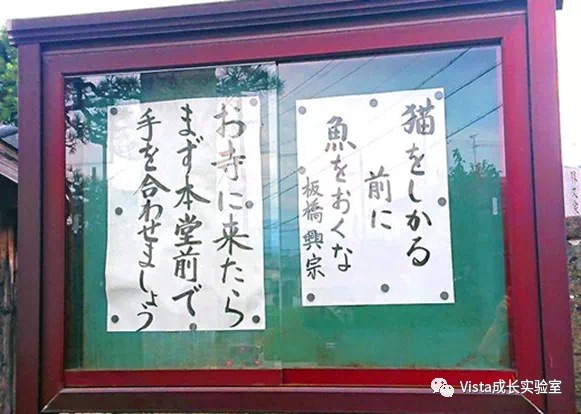 猫をしかる
前に
魚をおくな
板橋興宗
お寺に来たら
まず本堂前で
手を合わせましょう
Vista成长实验室